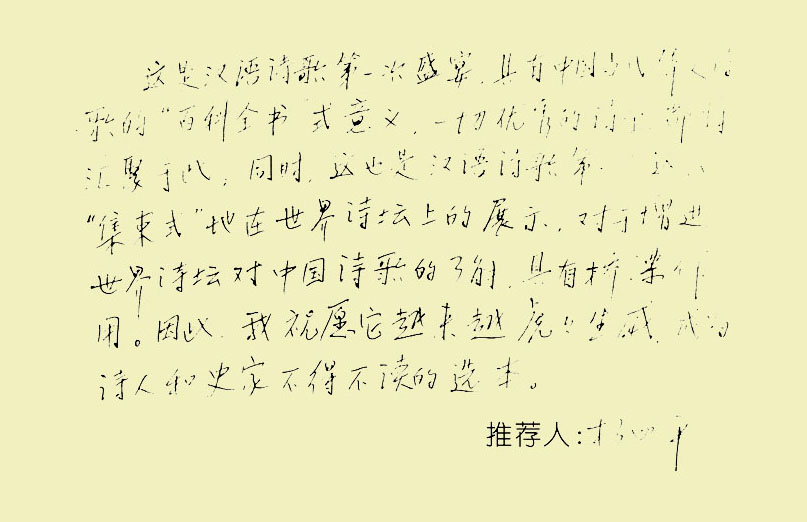 这是汉语诗歌第一次盛宴,具有中国当代诗
歌的“百科全书”式意义,一切优秀的诗
汇聚于此。同时,这也是汉语诗歌第一
“集束式”地在世界诗坛上的展示,对于增进
世界诗坛对中国诗歌的了解,具有桥梁作
用。因此,我祝愿它越来越虎虎生威,成为
诗人和史家不得不读的选本。
推荐人:杨四平